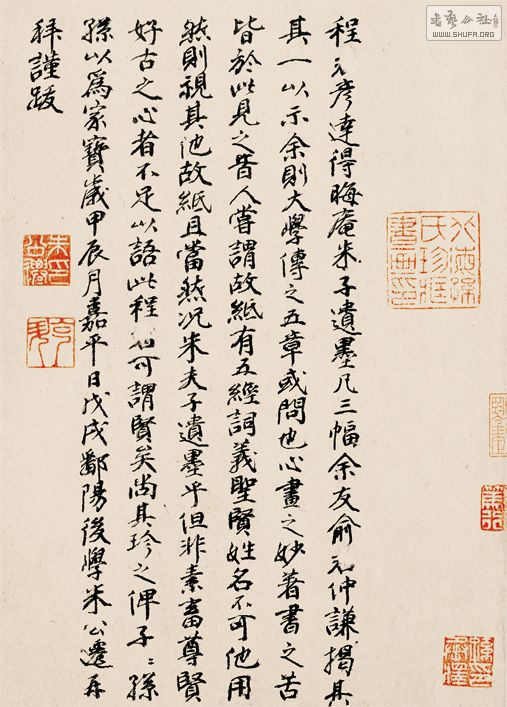 程元彦達得晦庵朱子遺墨凡三幅余友俞元仲謙揭其
其一以示余則大學傳之五章或問也心畫之妙著書之苦
皆於此見之昔人嘗謂故紙有五經詞義聖賢姓名不可他用
然則視其他故紙且當然况朱夫子遺墨乎但非素畜尊賢
好古之心者不足以語此程元可謂賢矣尚其珍之俾子〻孫
孫以為家寶歲甲辰月嘉平日戊戌鄱陽後學朱公遷再
拜謹跋
書藝公社
WWW.SHUFA.ORG